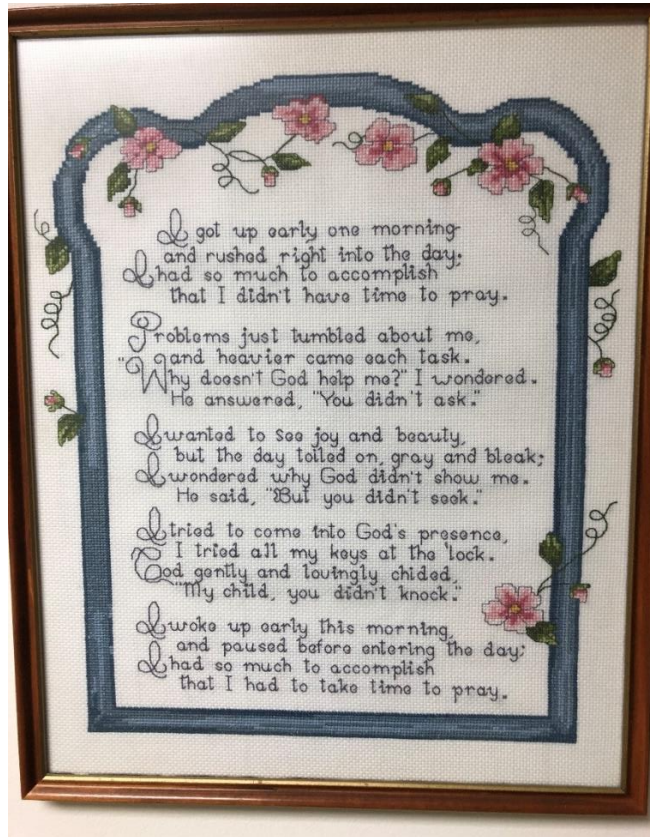 I got up early one morning
and rushed right into the day;
I had so much to accomplish
that I didn't have time to pray.
Problems just tumbled about me,
and heavier came each task.
"Why doesn't God help me?" I wondered.
He answered, "You didn't ask."
I wanted to see joy and beauty,
but the day toiled on, gray and bleak;
I wondered why God didn't show me.
He said, "But you didn't seek."
I tried to come into God's presence,
I tried all my keys at the lock.
God gently and lovingly chided,
"My child, you didn't knock."
I woke up early this morning,
and paused before entering the day;
I had so much to accomplish
that I had to take time to pray.